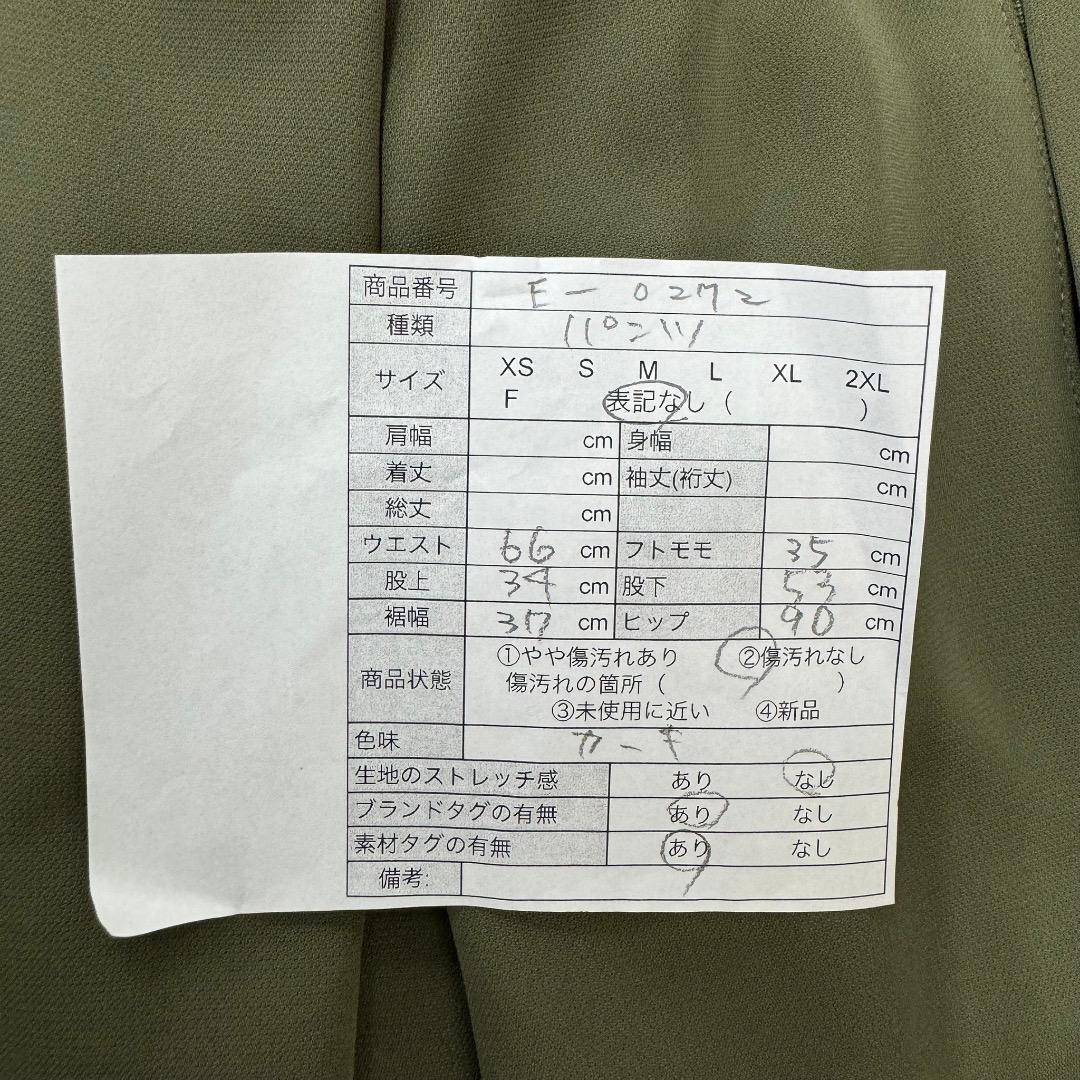 商品番号 E-0272
種類 パンツ
サイズ XS S M L XL 2XL
F 表記なし ( )
肩幅 cm 身幅 cm
着丈 cm 袖丈(裄丈) cm
総丈 cm
ウエスト 66 cm フトモモ 35 cm
股上 34 cm 股下 53 cm
裾幅 30 cm ヒップ 90 cm
商品状態 ①やや傷汚れあり ②傷汚れなし
傷汚れの箇所 ( )
③未使用に近い ④新品
色味 カーキ
生地のストレッチ感 あり なし
ブランドタグの有無 あり なし
素材タグの有無 あり なし
備考: